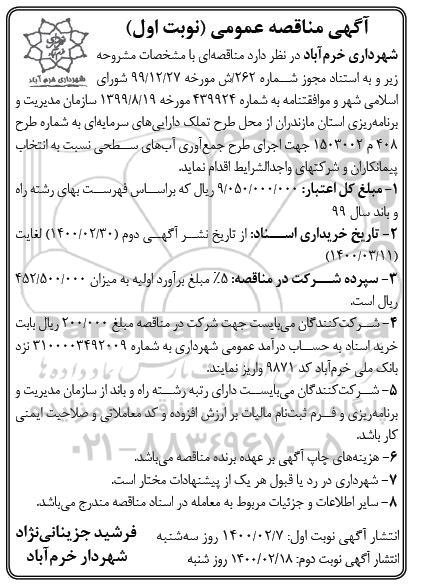 آگهی مناقصه عمومی (نوبت اول)
شهرداری خرم آباد
شهرداری خرم‌آباد در نظر دارد مناقصه‌ای با مشخصات مشروحه
زیر و به استناد مجوز شماره ۲۶۲/ش مورخه ۹۹/۱۲/۲۷ شورای
اسلامی شهر و موافقتنامه به شماره ۴۳۹۹۲۴ مورخه ۱۳۹۹/۸/۱۹ سازمان مدیریت و
برنامه‌ریزی استان مازندران از محل طرح تملک دارایی‌های سرمایه‌ای به شماره طرح
۴۰۸ م ۱۵۰۳۰۰۲ جهت اجرای طرح جمع‌آوری آب‌های سطحی نسبت به انتخاب
پیمانکاران و شرکتهای واجدالشرایط اقدام نماید.
۱- مبلغ کل اعتبار: ۹/۰۵۰/۰۰۰/۰۰۰ ریال که براساس فهرست بهای رشته راه
و باند سال ۹۹
۲- تاریخ خریداری اسناد: از تاریخ نشر آگهی دوم (۱۴۰۰/۰۲/۳۰) لغایت
(۱۴۰۰/۰۳/۱۱)
۳- سپرده شرکت در مناقصه: ۵٪ مبلغ برآورد اولیه به میزان ۴۵۲/۵۰۰/۰۰۰
ریال است.
۴- شرکت‌کنندگان می‌بایست جهت شرکت در مناقصه مبلغ ۲۰۰/۰۰۰ ریال بابت
خرید اسناد به حساب درآمد عمومی شهرداری به شماره ۳۱۰۰۰۰۳۴۹۲۰۰۹ نزد
بانک ملی خرم‌آباد کد ۹۸۷۱ واریز نمایند.
۵- شرکت‌کنندگان می‌بایست دارای رتبه رشته راه و باند از سازمان مدیریت و
برنامه‌ریزی و فرم ثبت‌نام مالیات بر ارزش افزوده و کد معاملاتی و صلاحیت ایمنی
کار باشد.
۶- هزینه‌های چاپ آگهی بر عهده برنده مناقصه می‌باشد.
۷- شهرداری در رد یا قبول هر یک از پیشنهادات مختار است.
۸- سایر اطلاعات و جزئیات مربوط به معامله در اسناد مناقصه مندرج می‌باشد.
انتشار آگهی نوبت اول: ۱۴۰۰/۰۲/۷ روز سه‌شنبه
انتشار آگهی نوبت دوم: ۱۴۰۰/۰۲/۱۸ روز شنبه
فرشید جزینانی‌نژاد
شهردار خرم‌آباد
۰۲۱-۸۸۳۴۹۶۷۰-۵